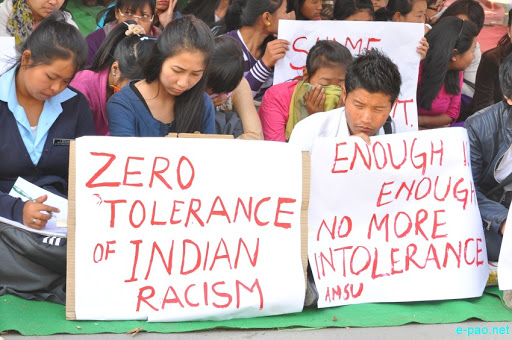 SHAME
ZERO
TOLERANCE
OF INDIAN
RACISM
ENOUGH !!
ENOUGH
NO MORE
INTOLERANCE
AMSU
e-pao.net